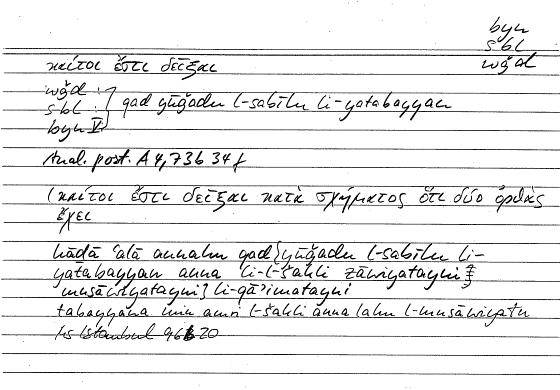 byn
sbl
wǧd
καίτοι ἔστι δεῖξαι
wǧd :
sbl : } qad yūǧadu l-sabīlu li-yatabayyan
byn V
Anal. post. A 4, 73b 34 f
(καίτοι ἔστι δεῖξαι κατὰ σχήματος ὅτι δύο ὀρθαῖς
ἔχει
hāḏā ʿalā annahu qad {yūǧadu l-sabīlu li-
yatabayyan anna li-l-šakli zāwiyatayni
musāwiyatayni} li-qāʾimatayni
tabayyana min amri l-šakli anna lahu l-musāwiyatu
Hs Istanbul 96 20